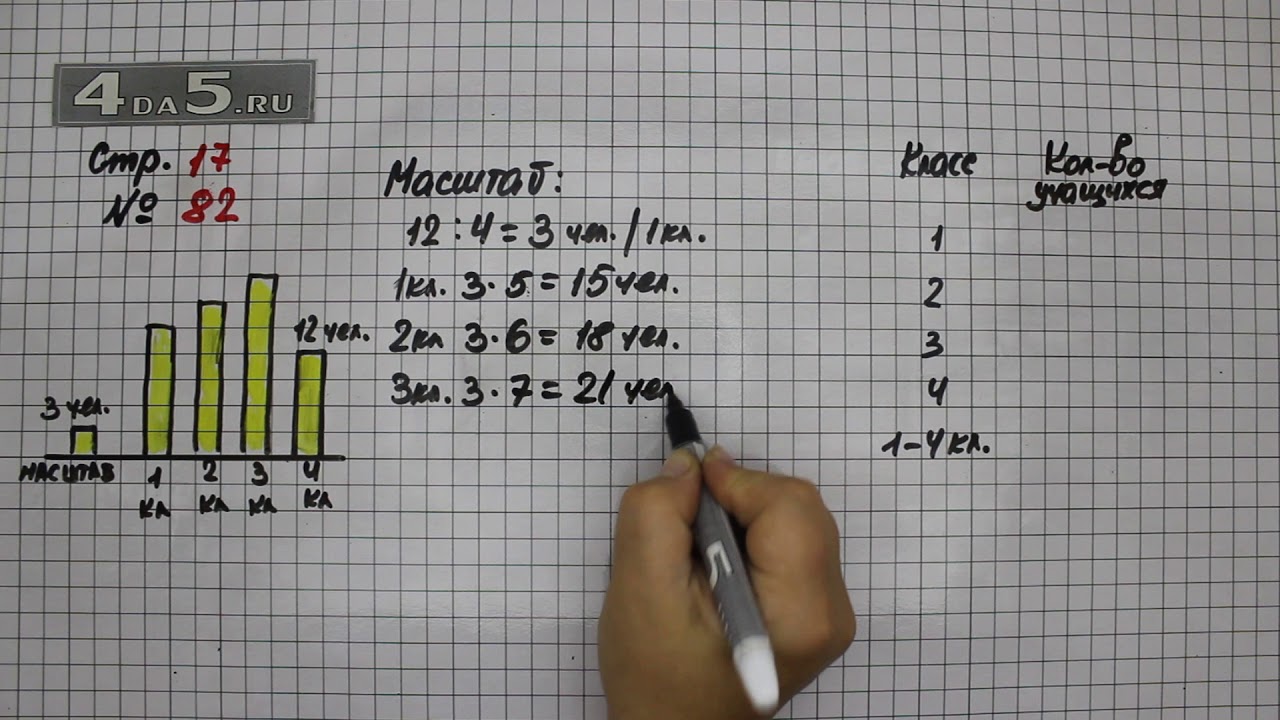 4DA5.RU
Стр. 17
№ 82
Масштаб:
12 : 4 = 3 чел. / 1кл.
1кл. 3 · 5 = 15 чел.
2кл 3 · 6 = 18 чел.
3кл. 3 · 7 = 21 чел
3 чел.
12 чел.
МАСШТАБ
1 кл
2 кл
3 кл
4 кл
Класс Кол-во
учащихся
1
2
3
4
1-4 кл.
5